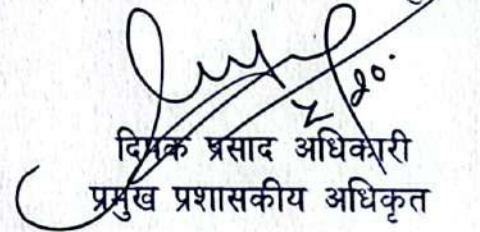 दिपक प्रसाद अधिकारी
प्रमुख प्रशासकीय अधिकृत